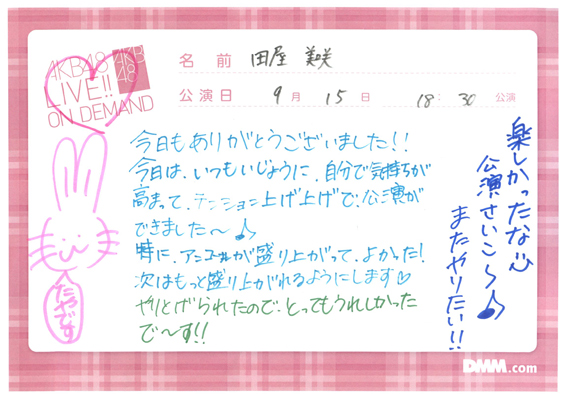 AKB48
LIVE!!
ON DEMAND
AKB
48
名前 田屋 美咲
公演日 9月 15日 18:30 公演
今日もありがとうございました!!
今日は、いつもいじょうに、自分で気持ちが
高まって、テンション上げ上げで、公演が
できました〜♪
特に、アンコールが盛り上がって、よかった!
次はもっと盛り上がれるようにします♡
やりとげられたので、とってもうれしかった
で〜す!!
楽しかったな心
公演さいこ〜♪
またやりたい!!
たやです
DMM.com